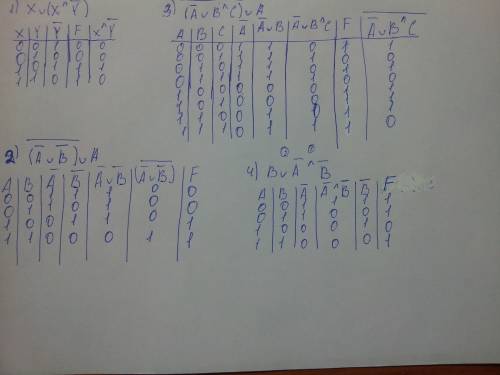 1) X∪(X^Y̅)
X Y Y̅ F X^Y̅
0 0 1 0 0
0 1 0 0 0
1 0 1 1 1
1 1 0 1 0
3) (A̅∪B^C)∪A
A B C A̅ A̅∪B A̅∪B^C F A̅∪B^C
0 0 0 1 1 0 1 1
0 0 1 1 1 1 0 0
0 1 0 1 1 0 1 1
0 1 1 1 1 1 0 0
1 0 0 0 0 0 1 1
1 0 1 0 0 0 1 1
1 1 0 0 1 0 1 1
1 1 1 0 1 1 1 0
2) (A̅∪B̅)∪A
A B A̅ B̅ A̅∪B̅ (A̅∪B̅) F
0 0 1 1 1 0 0
0 1 1 0 1 0 0
1 0 0 1 1 0 1
1 1 0 0 0 1 1
4) B∪A̅^B̅
A B A̅ A̅^B̅ B̅ F
0 0 1 1 1 1
0 1 1 0 0 1
1 0 0 0 1 0
1 1 0 0 0 1